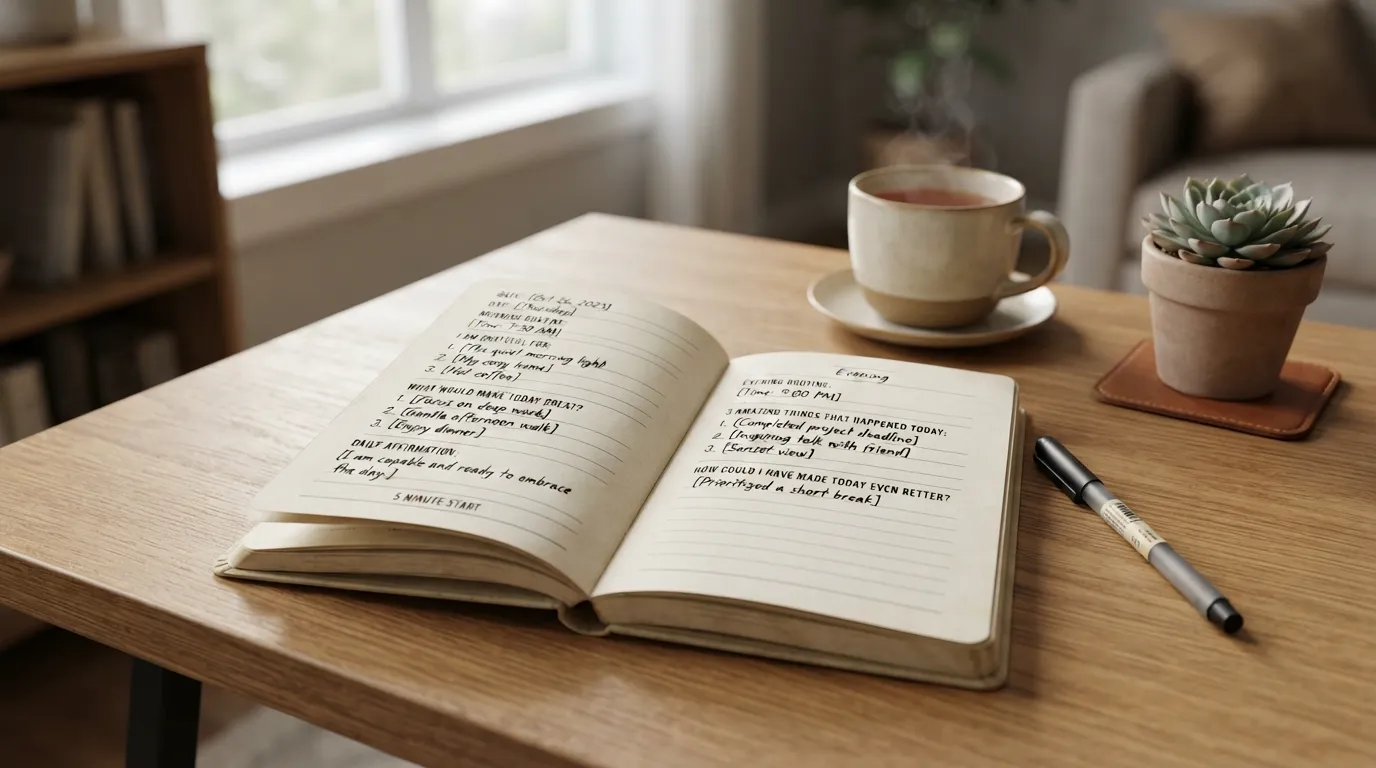 DATE: [Oct 26, 2023]
DAY: [Thursday]
[Time: 7:30 AM]
I AM GRATEFUL FOR:
1. [The quiet morning light
2. [My cozy home]
3. [Hot coffee]
WHAT WOULD MAKE TODAY GREAT?
1. [Focus on deep work]
2. [Gentle afternoon walk]
3. [Enjoy dinner]
DAILY AFFIRMATION:
[I am capable and ready to embrace
the day.]
5 MINUTE START
Evening
EVENING ROUTINE:
[Time: 9:00 PM]
3 AMAZING THINGS THAT HAPPENED TODAY:
1. [Completed project deadline]
2. talk with friend]
3. [Sunset view]
HOW COULD I HAVE MADE TODAY EVEN BETTER?
[Prioritized a short break]